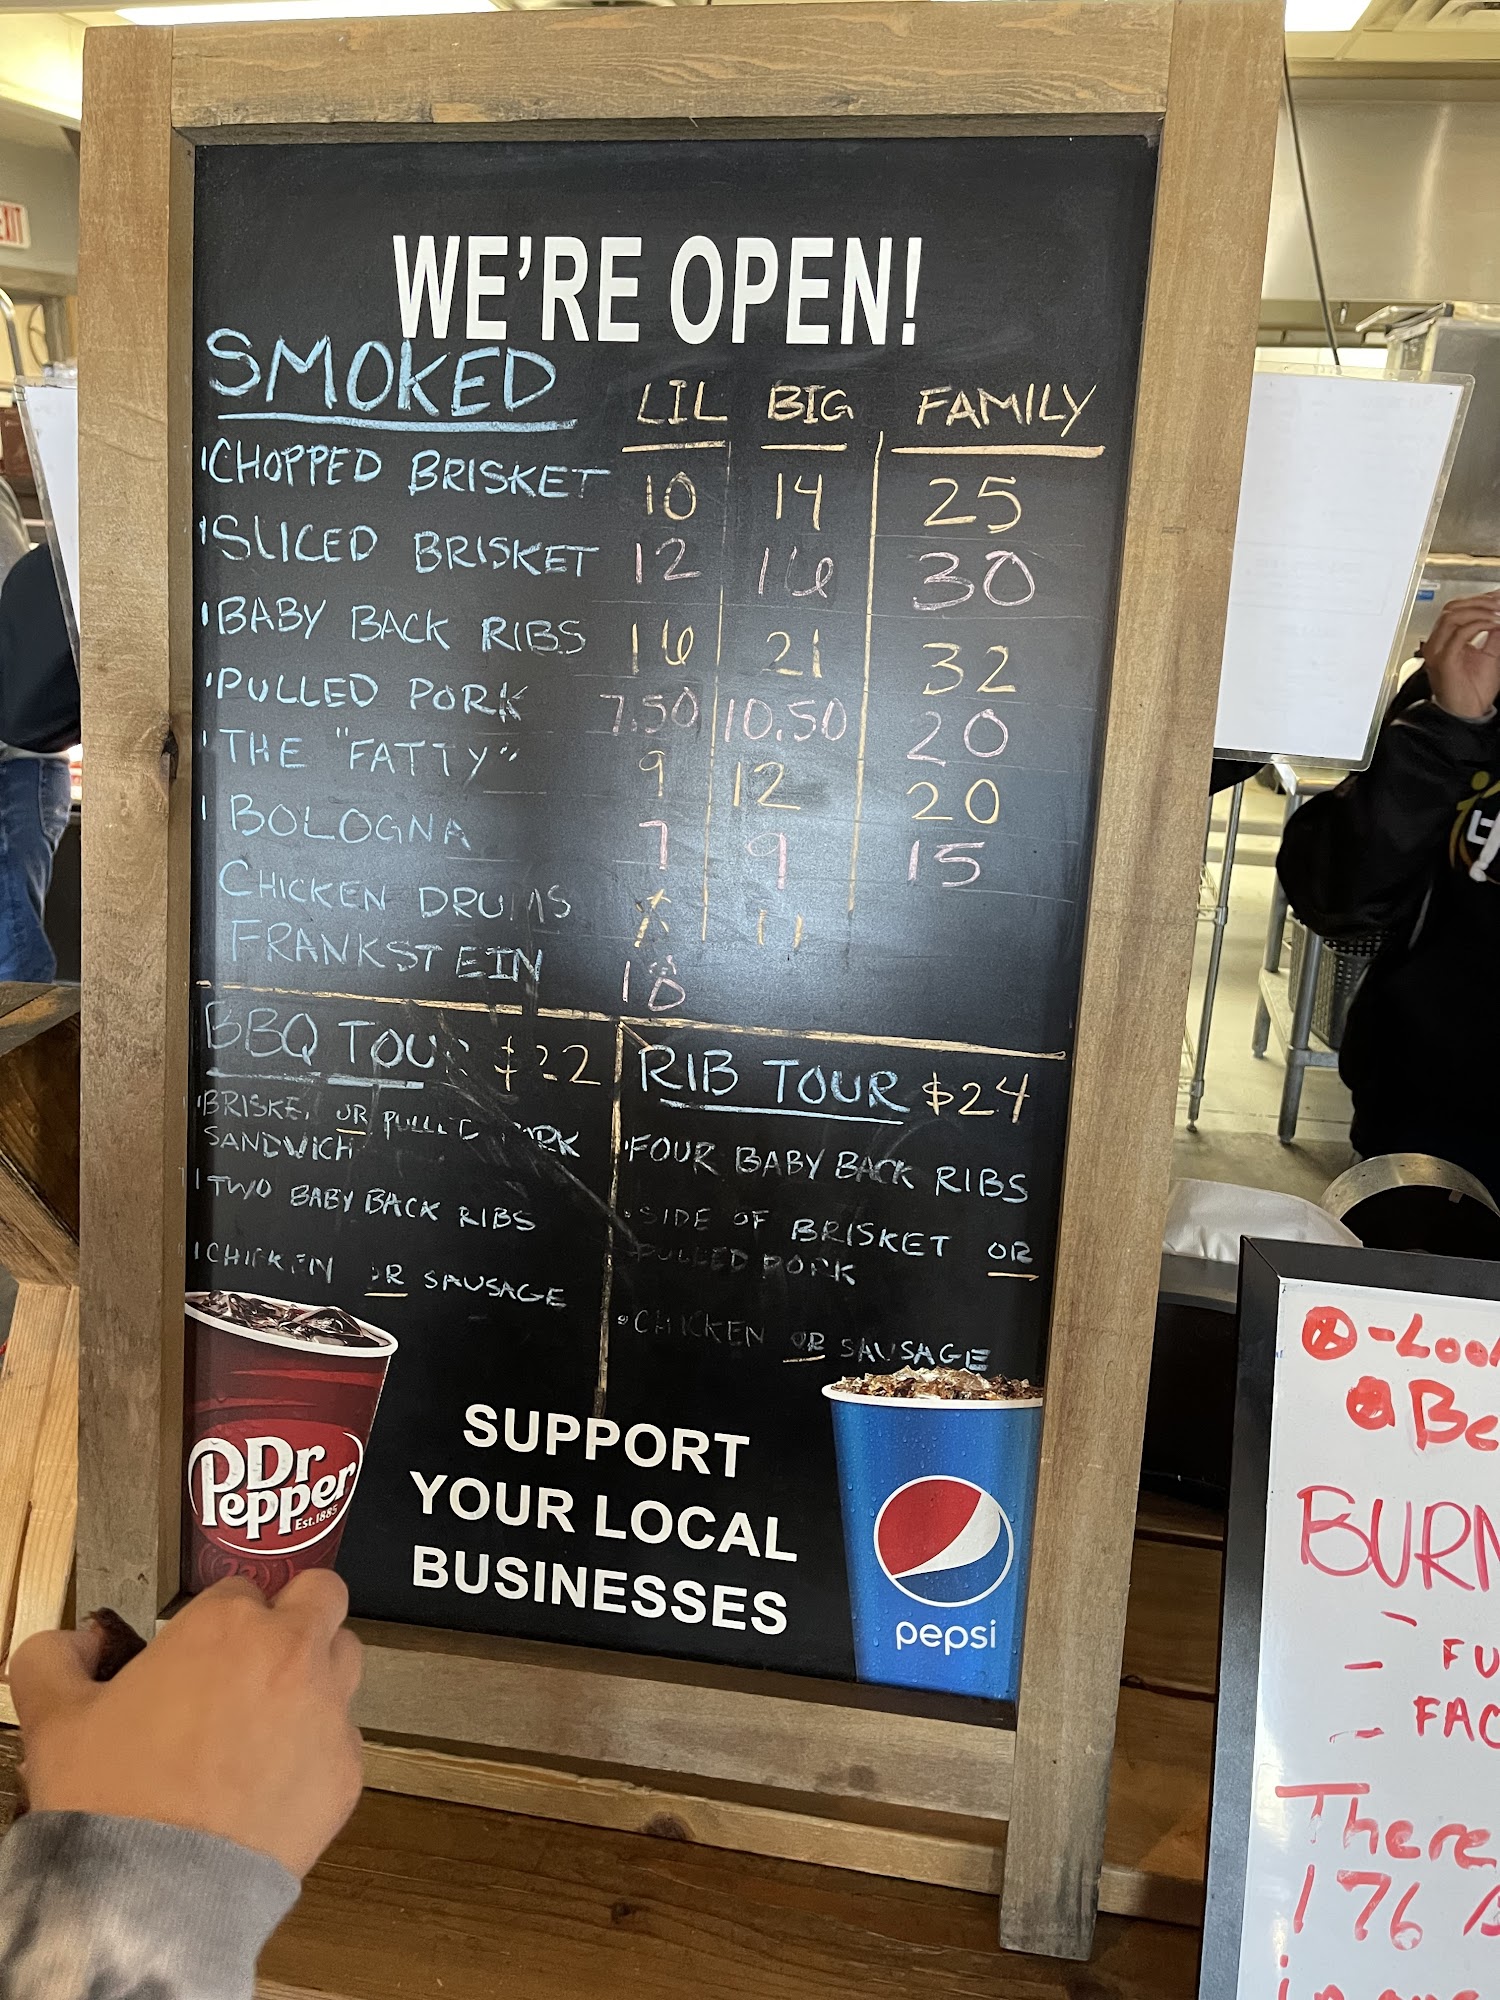 EXIT
WE'RE OPEN!
SMOKED LIL BIG FAMILY
CHOPPED BRISKET 10 14 25
SLICED BRISKET 12 16 30
BABY BACK RIBS 16 21 32
PULLED PORK 7.50 10.50 20
THE "FATTY" 9 12 20
BOLOGNA 7 9 15
CHICKEN DRUMS X 11
FRANKSTEIN 18
BBQ TOU $22
BRISKE OR PULLED ORK
SANDWICH
TWO BABY BACK RIBS
CHICKEN OR SAUSAGE
RIB TOUR $24
FOUR BABY BACK RIBS
SIDE OF BRISKET OR
PULLED PORK
CHICKEN OR SAUSAGE
Dr
Pepper
Est.1885
23
SUPPORT
YOUR LOCAL
BUSINESSES
pepsi
-Loo
Be
BURN
- FU
- FAC
There
176